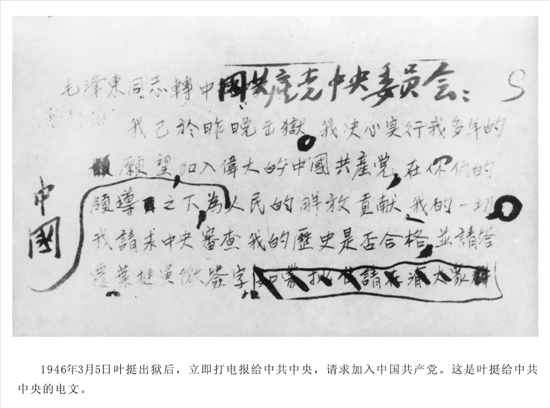 毛泽東同志轉中國共產党中央委员会：
我已於昨晚出獄。我决心实行我多年的
願望加入偉大的中國共產党，在你们的
領導之下為人民的解放貢献我的一切。
中國
我請求中央審查我的歷史是否合格並請答
覆。葉挺
1946年3月5日叶挺出狱后，立即打电报给中共中央，请求加入中国共产党。这是叶挺给中共
中央的电文。